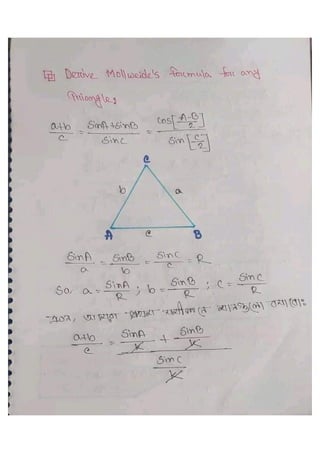 Derive Mollweide's formula for any
triangle:
a+b/c = SinA+SinB/Sinc = Cos[A-B/2]/Sin[C/2]
C
b a
A c B
SinA/a = SinB/b = Sinc/c = R
So a = SinA/R ; b = SinB/R ; c = Sinc/R
a+b/c = SinA/K + SinB/K / Sinc/K